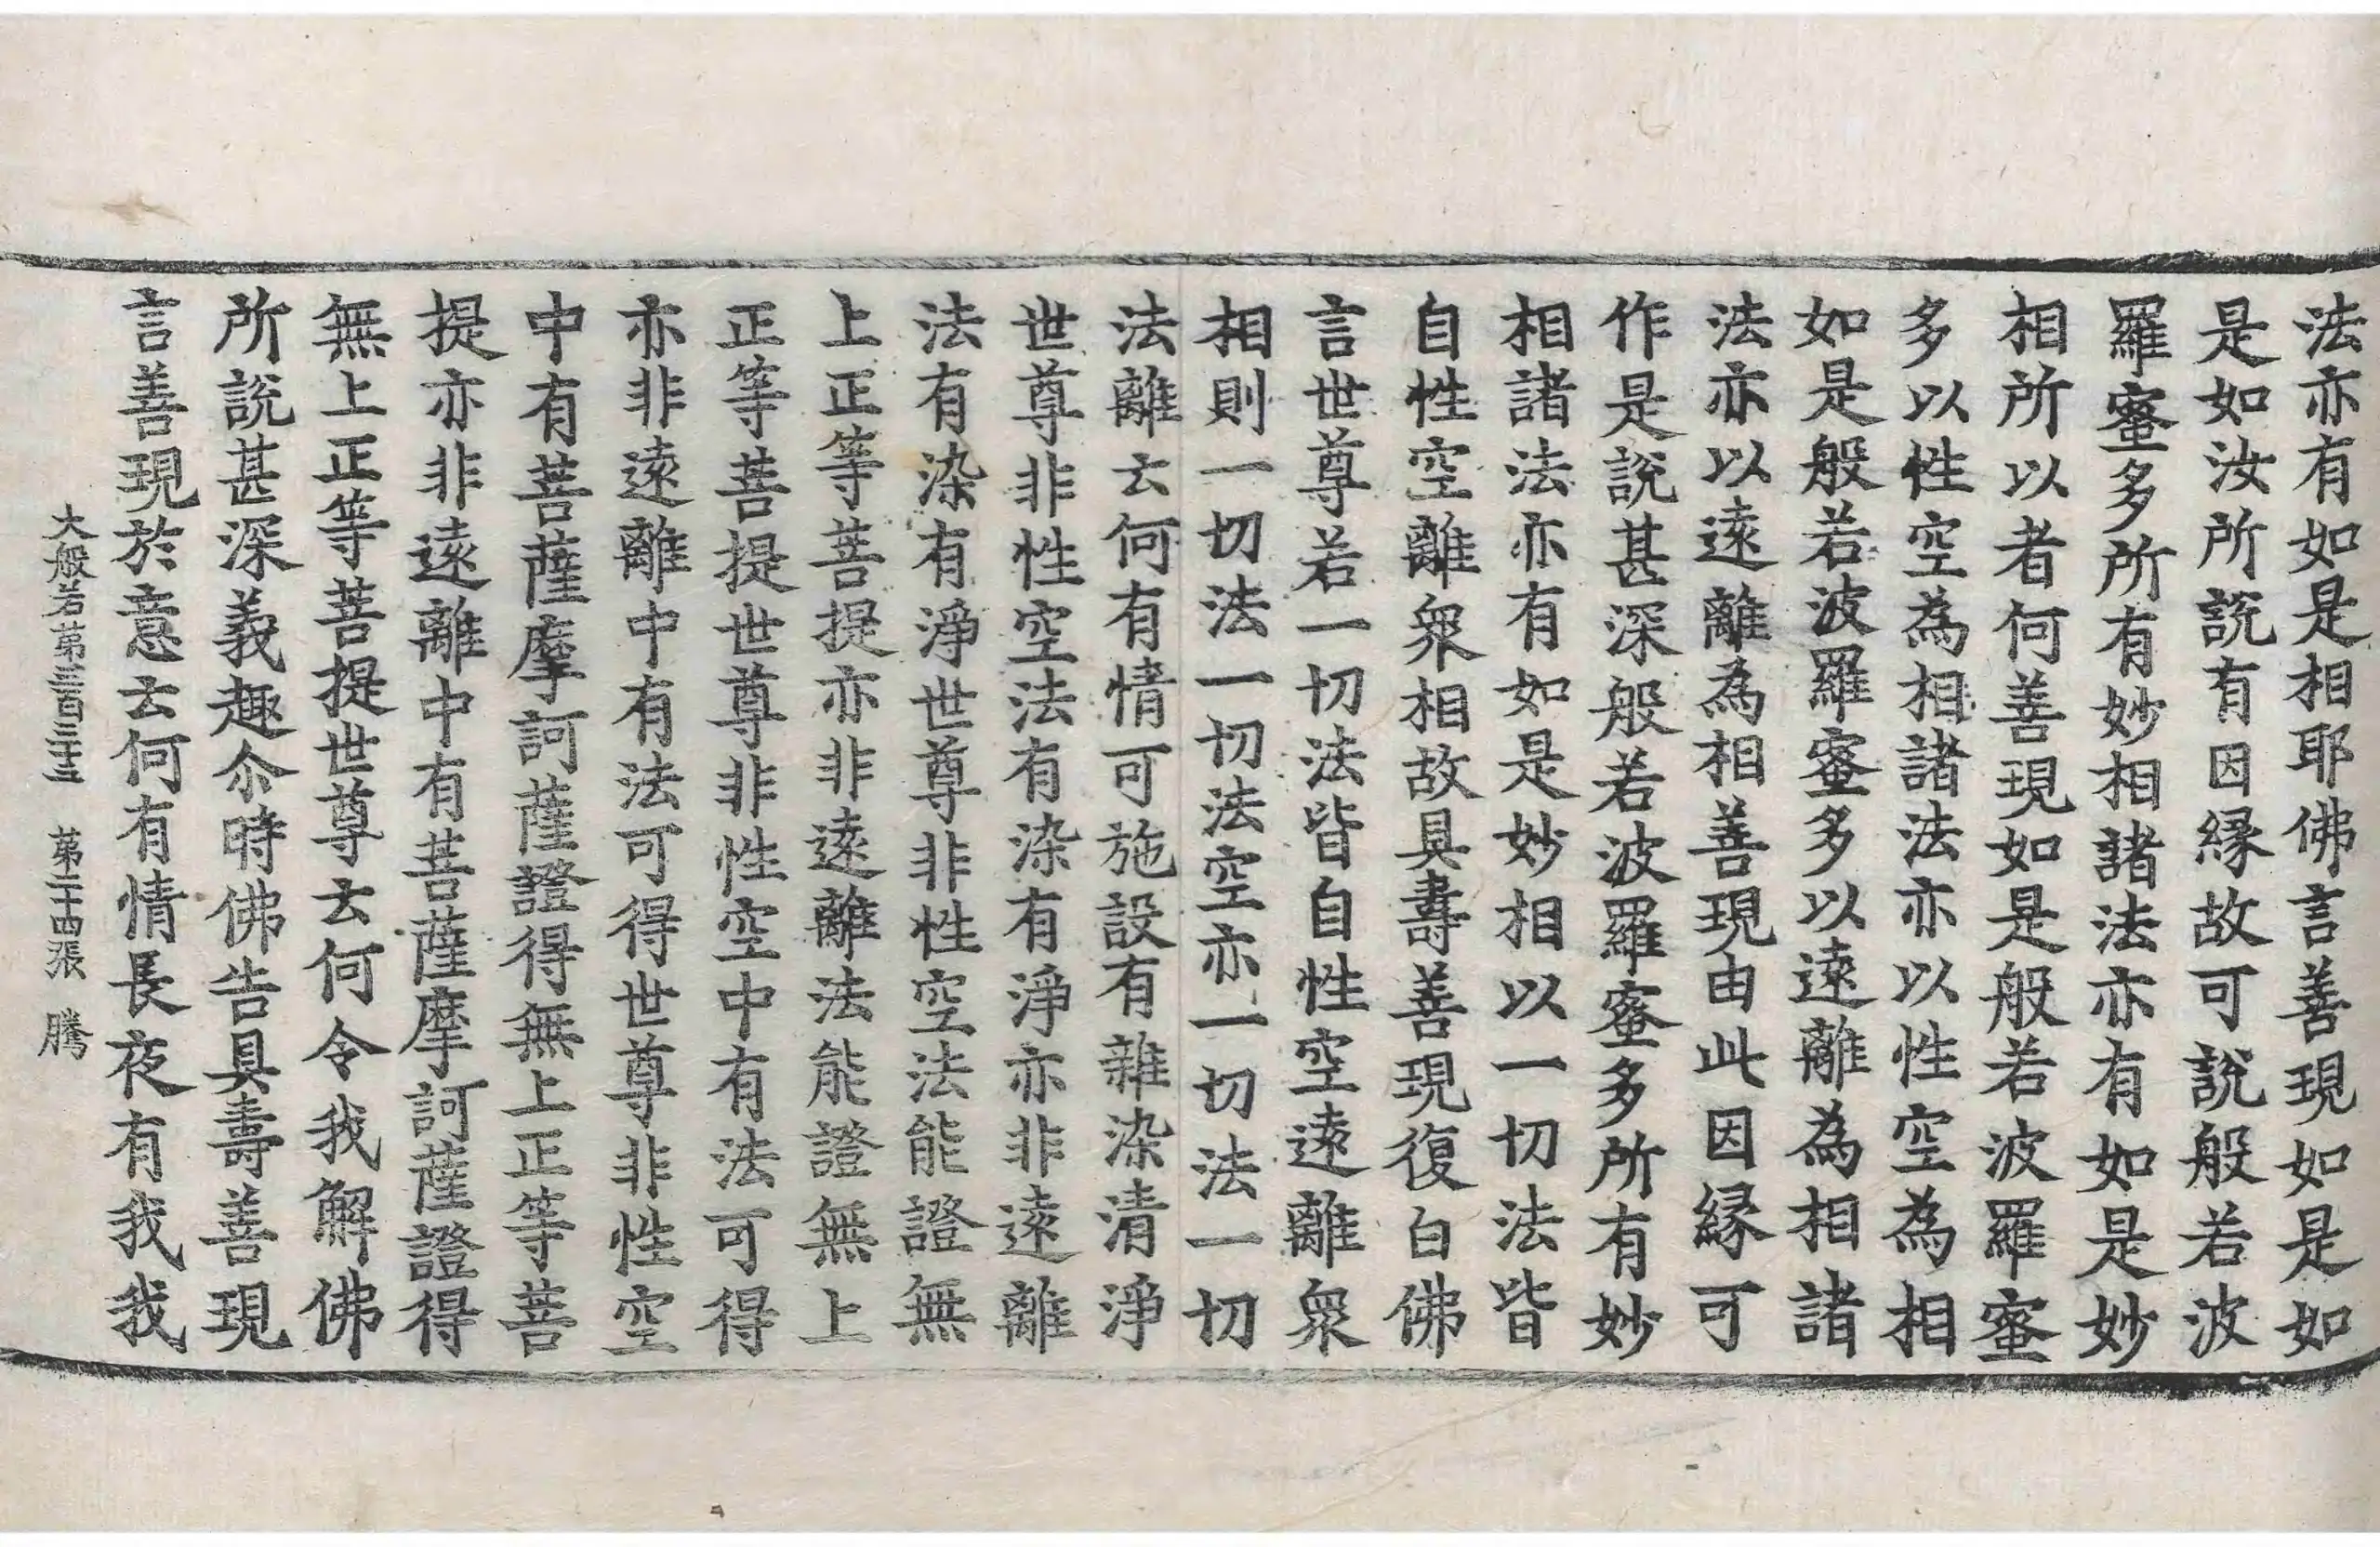 法亦有如是相耶佛言善現如是如
是如汝所說有因緣故可說般若波
羅蜜多所有妙相諸法亦有如是妙
相所以者何善現如是般若波羅蜜
多以性空為相諸法亦以性空為相
如是般若波羅蜜多以遠離為相諸
法亦以遠離為相善現由此因緣可
作是說甚深般若波羅蜜多所有妙
相諸法亦有如是妙相以一切法皆
自性空離衆相故具壽善現復白佛
言世尊若一切法皆自性空遠離衆
相則一切法一切法空亦一切法一切
法離云何有情可施設有雜染清淨
世尊非性空法有染有淨亦非遠離
法有染有淨世尊非性空法能證無
上正等菩提亦非遠離法能證無上
正等菩提世尊非性空中有法可得
亦非遠離中有法可得世尊非性空
中有菩薩摩訶薩證得無上正等菩
提亦非遠離中有菩薩摩訶薩證得
無上正等菩提世尊云何令我解佛
所說甚深義趣尒時佛告具壽善現
言善現於意云何有情長夜有我我
大般若第三百三十三 第二十四張 騰